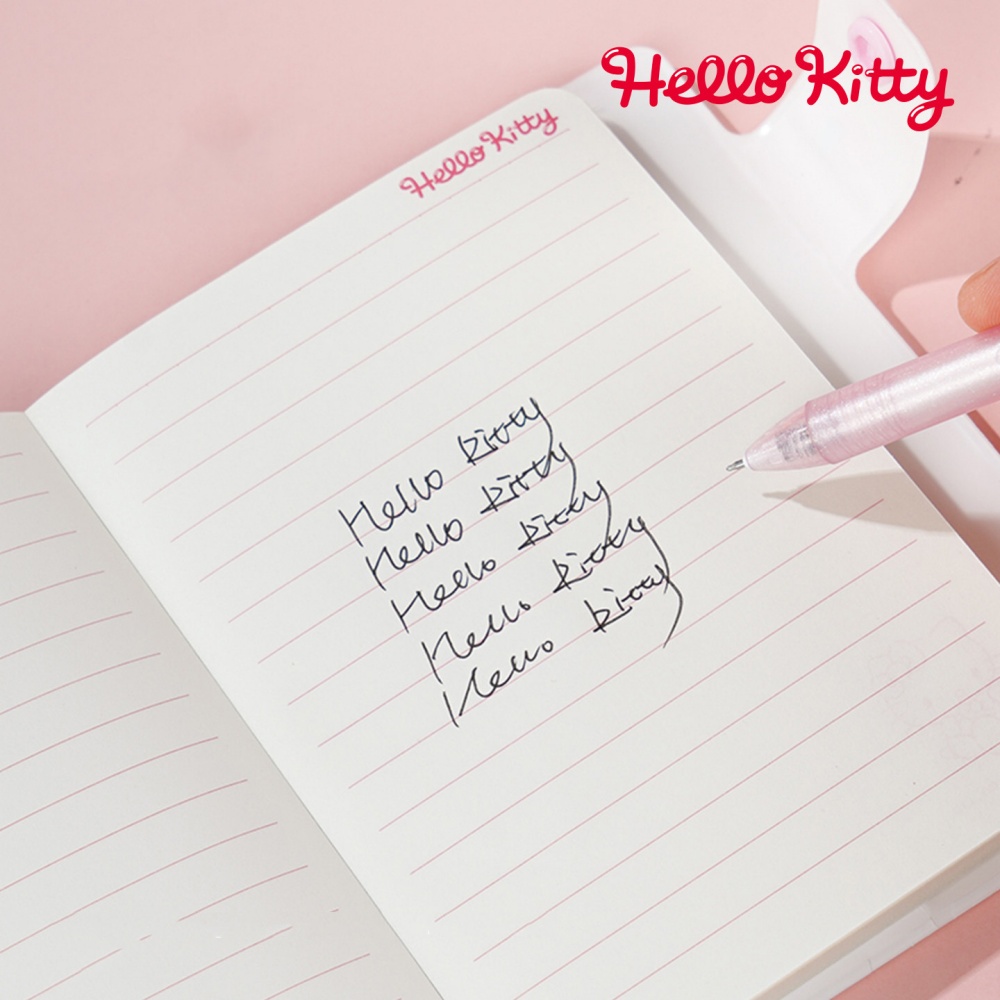 Hello Kitty
Hello Kitty
Hello kitty
Hello kitty
Hello kitty
Hello kitty
Hello kitty